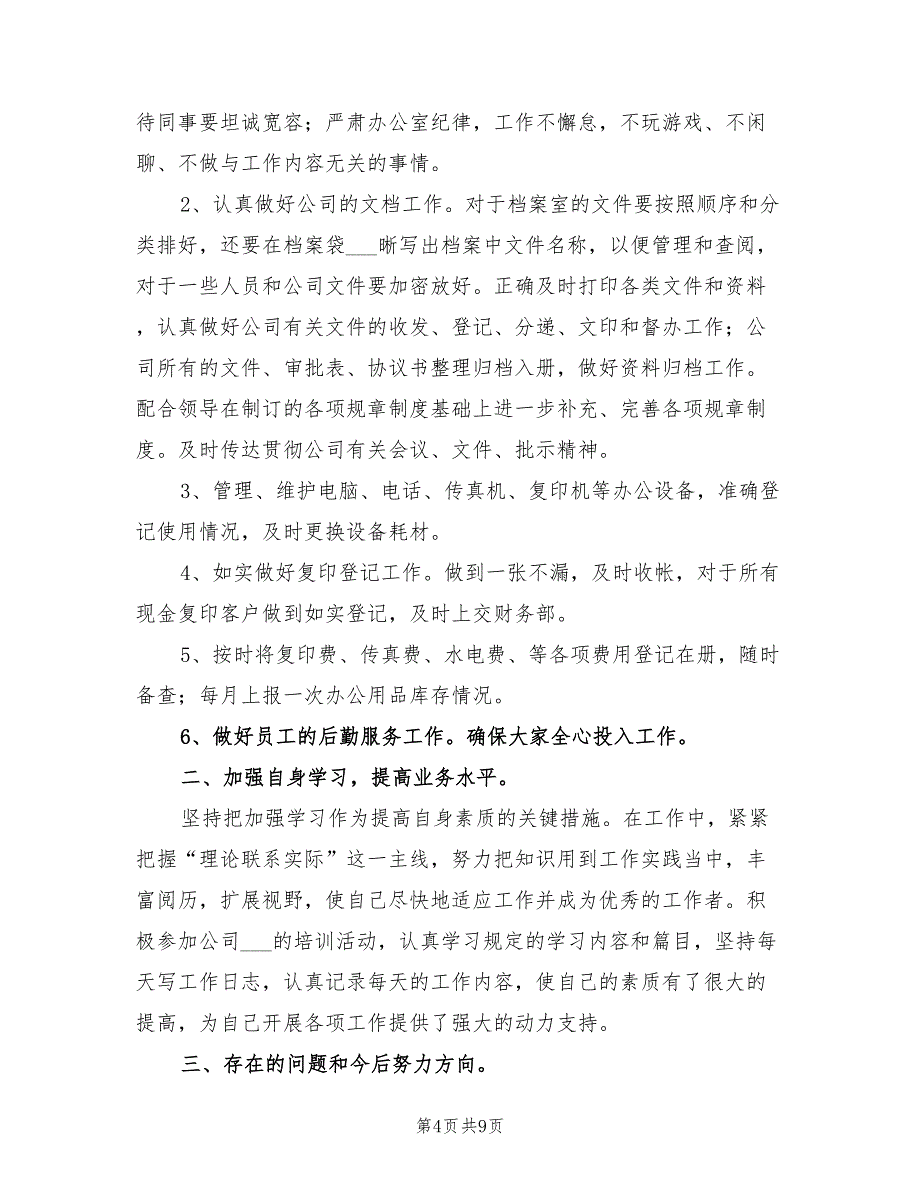 待同事要坦诚宽容；严肃办公室纪律，工作不懈怠，不玩游戏、不闲
聊、不做与工作内容无关的事情。
2、认真做好公司的文档工作。对于档案室的文件要按照顺序和分
类排好，还要在档案袋___晰写出档案中文件名称，以便管理和查阅，
对于一些人员和公司文件要加密放好。正确及时打印各类文件和资料
，认真做好公司有关文件的收发、登记、分递、文印和督办工作；公
司所有的文件、审批表、协议书整理归档入册，做好资料归档工作。
配合领导在制订的各项规章制度基础上进一步补充、完善各项规章制
度。及时传达贯彻公司有关会议、文件、批示精神。
3、管理、维护电脑、电话、传真机、复印机等办公设备，准确登
记使用情况，及时更换设备耗材。
4、如实做好复印登记工作。做到一张不漏，及时收帐，对于所有
现金复印客户做到如实登记，及时上交财务部。
5、按时将复印费、传真费、水电费、等各项费用登记在册，随时
备查；每月上报一次办公用品库存情况。
6、做好员工的后勤服务工作。确保大家全心投入工作。
二、加强自身学习，提高业务水平。
坚持把加强学习作为提高自身素质的关键措施。在工作中，紧紧
把握“理论联系实际”这一主线，努力把知识用到工作实践当中，丰
富阅历，扩展视野，使自己尽快地适应工作并成为优秀的工作者。积
极参加公司___的培训活动，认真学习规定的学习内容和篇目，坚持每
天写工作日志，认真记录每天的工作内容，使自己的素质有了很大的
提高，为自己开展各项工作提供了强大的动力支持。
三、存在的问题和今后努力方向。
第4页共9页